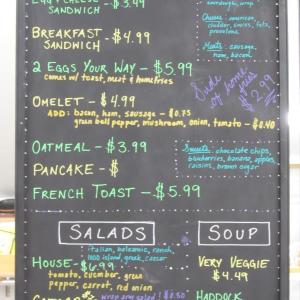 EGG & CHEESE - $3.99
SANDWICH
BREAKFAST - $4.99
SANDWICH
2 EGGS YOUR WAY - $5.99
comes w/ toast, meat & homefries
OMELET - $4.99
ADD: bacon, ham, sausage - $0.75
green bell pepper, mushroom, onion, tomato - $0.40
OATMEAL - $3.99
PANCAKE - $
FRENCH TOAST - $5.99
wrap
Cheese - american,
cheddar, swiss, feta,
provolone
Meats - sausage,
ham, bacon
Side of home
fries
$2.99
Sweets: chocolate chips,
blueberries, banana, apples,
raisins, brown sugar
SALADS
italian, balsamic, ranch,
1000 island, greek, caesar
HOUSE - $6.99
tomato, cucumber, green
pepper, carrot, red onion
wrap any salad!
SOUP
VERY VEGGIE
$4.49
HADDOCK